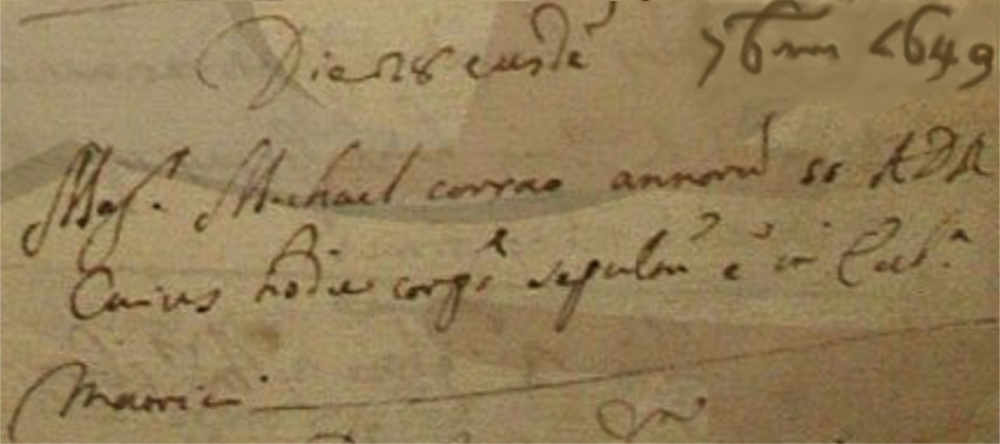 Die 28 eiusdē 76ris 1649
Mag.r Michael corrao annorū 55 ADR
Cuius hodie corpꝰ sepultū ē in Eccl.a
Matrici